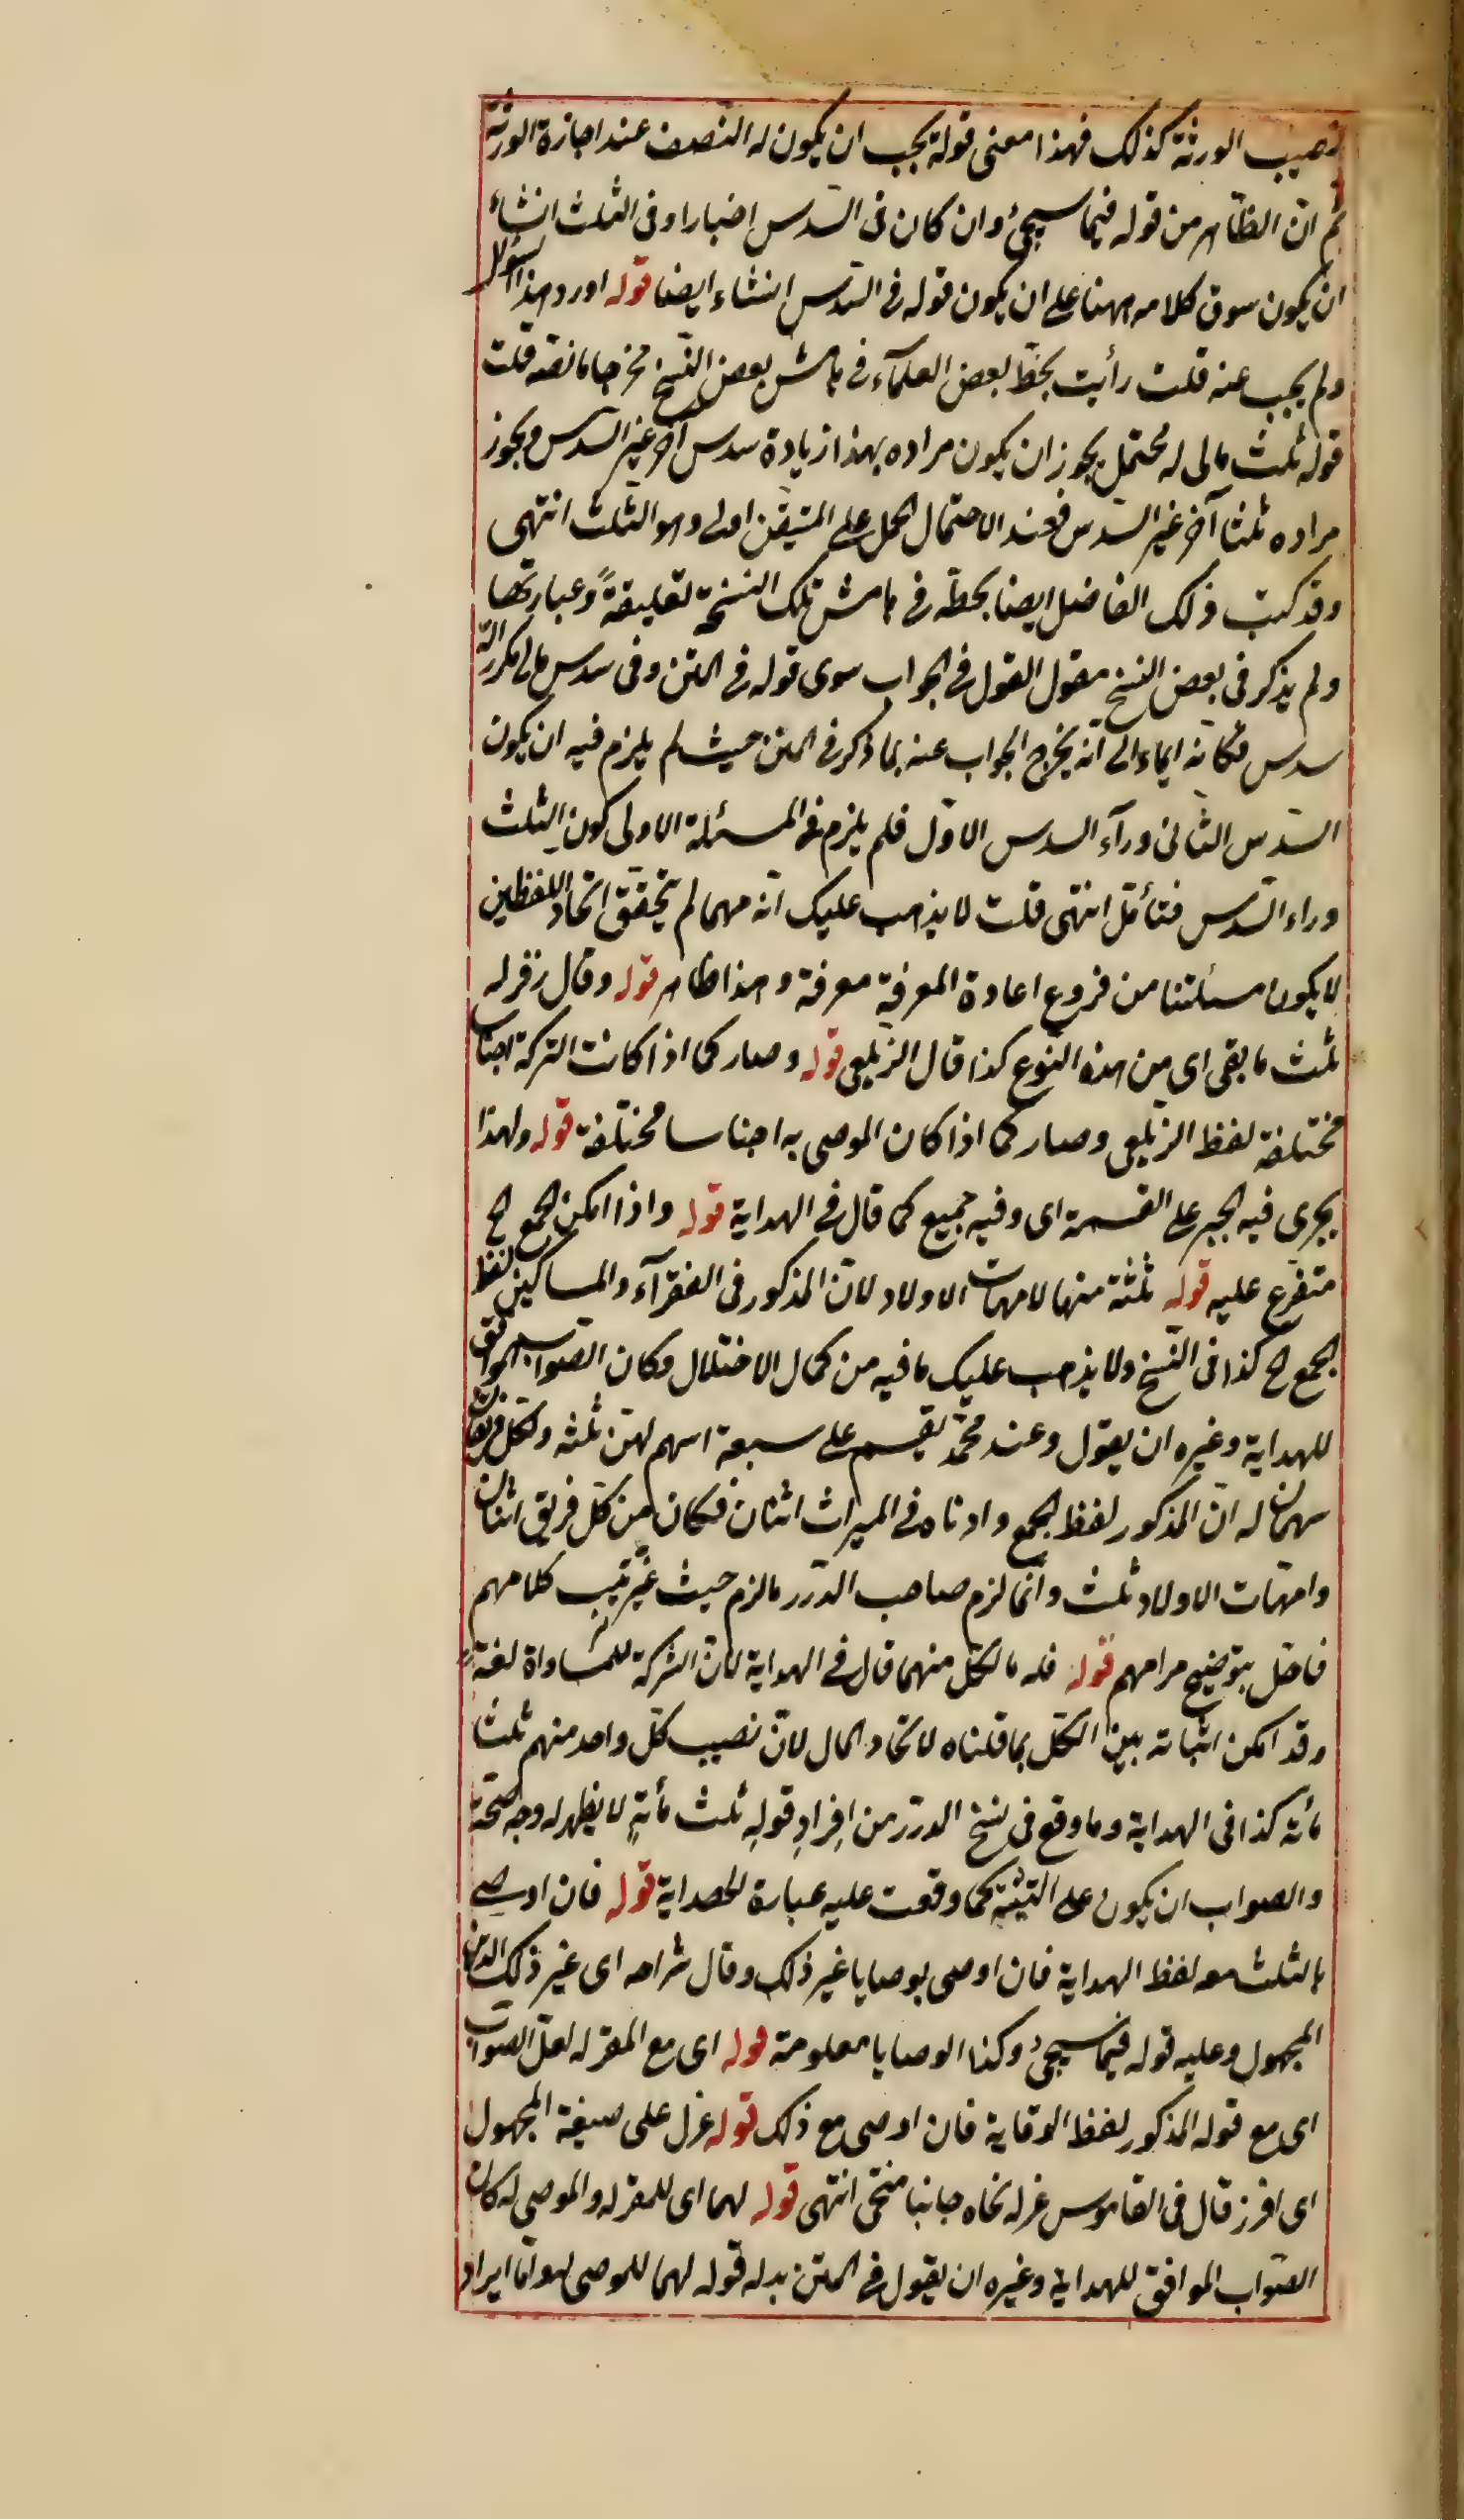 نصيب الورثة كذلك فهذا معنى قوله يجب ان يكون له النصف عند اجازة الورثة
ثم انّ الظاهر من قوله فيما سيجئ وان كان فى السّدس اخبارا وفى الثلث انشاء
ان يكون سوق كلامه ههنا على ان يكون قوله فى السّدس انشاء ايضا قوله اورد هذا السؤال
ولم يجب عنه قلت رأيت بخطّ بعض العلمآء فى هامش بعض النّسخ مخرجا ما نصّه قلت
قوله ثلث مالى له محتمل يجوز ان يكون مراده بهذا زيادة سدس آخر غير السدس ويجوز
مراده ثلثا آخر غير السّدس فعند الاحتمال الحمل على المتيقّن اولى وهو الثلث انتهى
وقد كتب ذلك الفاضل ايضا بخطّه فى هامش تلك النسخة تعليقةً وعبارتها
ولم يذكر فى بعض النسخ مقول القول فى الجواب سوى قوله فى المتن وفى سدس مالى مكررا له
سدس فكانّه ايماء الى انّه يخرج الجواب عنه بما ذكر فى المتن حيث لم يلزم فيه ان يكون
السّدس الثّانى ورآء السدس الاوّل فلم يلزم فى المسئلة الاولى كون الثلث
وراء السّدس فتأمّل انتهى قلت لا يذهب عليك انّه مهما لم يتحقّق اتحاد اللفظين
لا يكون مسئلتنا من فروع اعادة المعرفة معرفة وهذا ظاهر قوله وقال زفر له
ثلث ما بقى اى من هذه النّوع كذا قال الزيلعى قوله وصار كما اذا كانت التركة اجناسا
مختلفة لفظ الزيلعى وصار كما اذا كان الموصى به اجناسا مختلفة قوله ولهذا
يجرى فيه الجبر على القسمة اى وفيه جميع كما قال فى الهداية قوله واذا امكن الجمع الخ
متفرّع عليه قوله ثلثة منها لامهات الاولاد لانّ المذكور فى الفقرآء والمساكين لفظ
الجمع الخ كذا فى النّسخ ولا يذهب عليك ما فيه من كمال الاختلال وكان الصّواب الموافق
للهداية وغيره ان يقول وعند محمّد يقسم على سبعة اسهم لهنّ ثلثه ولكل فريق
سهمان له انّ المذكور لفظ الجمع وادناه فى الميراث اثنان فكان من كلّ فريق اثنان
وامهّات الاولاد ثلث وانّما لزم صاحب الدّرر ما لزم حيث غيّر ترتيب كلامهم
فاخلّ بتوضيح مرامهم قوله فله مالكلّ منهما قال فى الهداية لانّ الشركة للمساواة لغةً
وقد امكن اثباته بين الكلّ بما قلناه لاتحاد المال لانّ نصيب كلّ واحد منهم ثلثا
مأته كذا فى الهداية وما وقع فى نسخ الدرر من افرادِ قولِه ثلث مأةٍ لا يظهر له وجه صحّة
والصواب ان يكون على التثنية كما وقعت عليه عبارة الهداية قوله فان اوصى
بالثلث معه لفظ الهداية فان اوصى بوصايا غير ذلك وقال شراحه اى غير ذلك الدّين
المجهول وعليه قوله فيما سيجئ وكذا الوصايا معلومة قوله اى مع المقر له لعلّ الصّواب
اى مع قوله المذكور لفظ الوقاية فان اوصى مع ذلك قوله عزل على صيغة المجهول
اى افرز قال فى القاموس عزله نحاه جانبا فتنحّى انتهى قوله لهما اى للمقر له والموصى له كان
الصّواب الموافق للهداية وغيره ان يقول فى المتن بدله قوله لهما للموصى لهو امّا ايراد